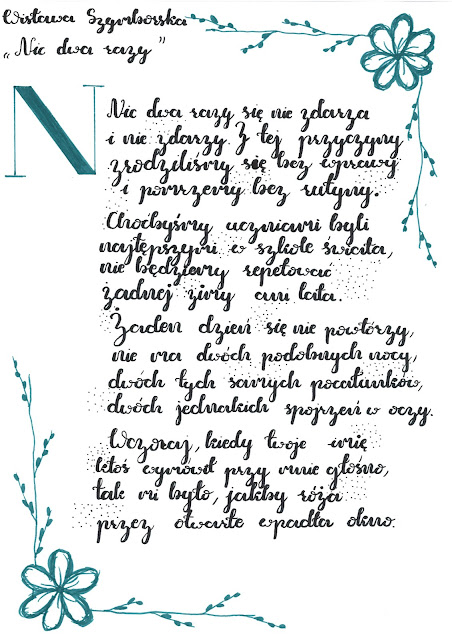 Wisława Szymborska
„Nic dwa razy”
N
Nic dwa razy się nie zdarza
i nie zdarzy. Z tej przyczyny
zrodziliśmy się bez wprawy
i pomrzemy bez rutyny.
Choćbyśmy uczniami byli
najtępszymi w szkole świata,
nie będziemy repetować
żadnej zimy ani lata.
Żaden dzień się nie powtórzy,
nie ma dwóch podobnych nocy,
dwóch tych samych pocałunków,
dwóch jednakich spojrzeń w oczy.
Wczoraj, kiedy twoje imię
ktoś wymówił przy mnie głośno,
tak mi było, jakby róża
przez otwarte wpadła okno.